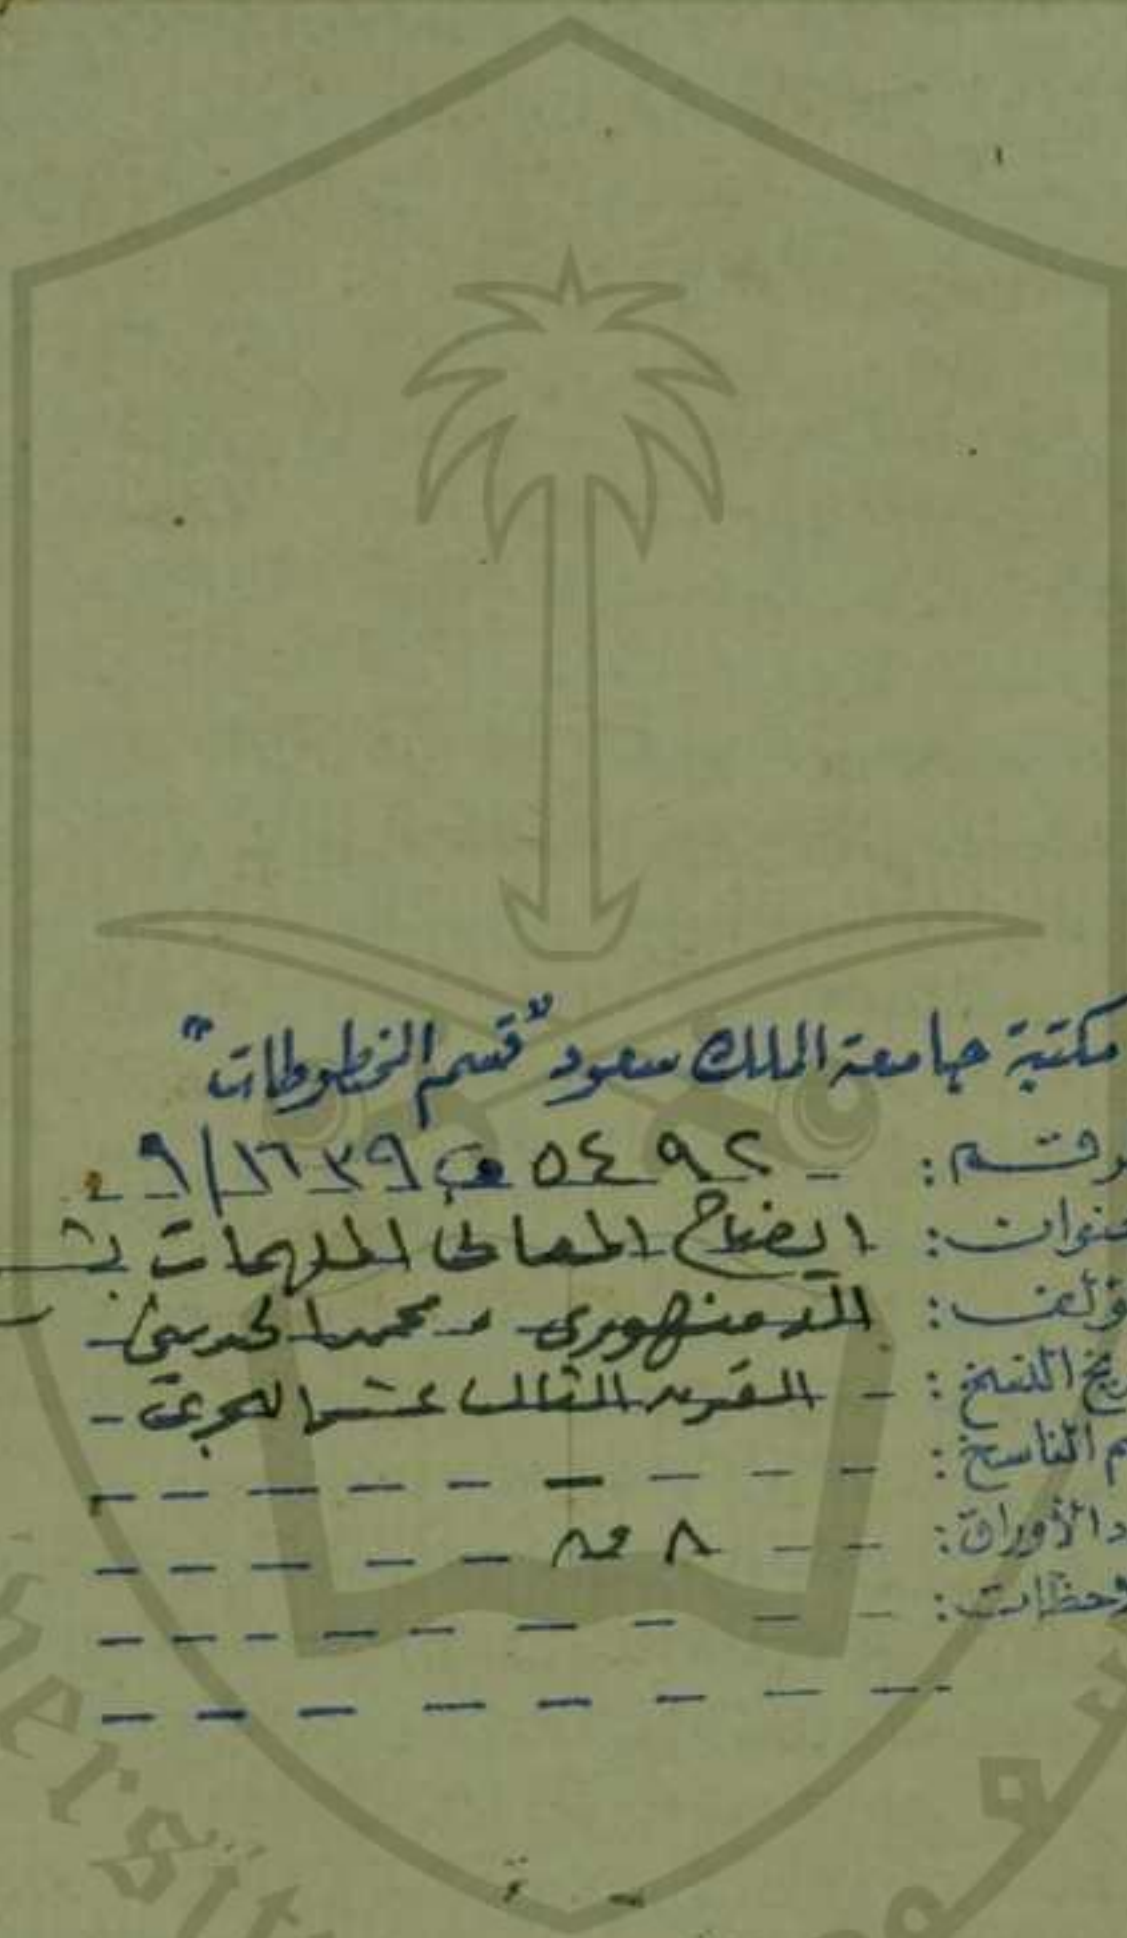 مكتبة جامعة الملك سعود "قسم المخطوطات"
رقم: ٥٤٩٢ ف ١٦٣٩/٩
عنوان: ايضاح المعاني الملهمات
ؤلف: الدمنهوري، محمد
ريخ النسخ: القرن الثالث عشر الهجري
م الناسخ:
د الأوراق: ٨ ق
وحظات:
ersit